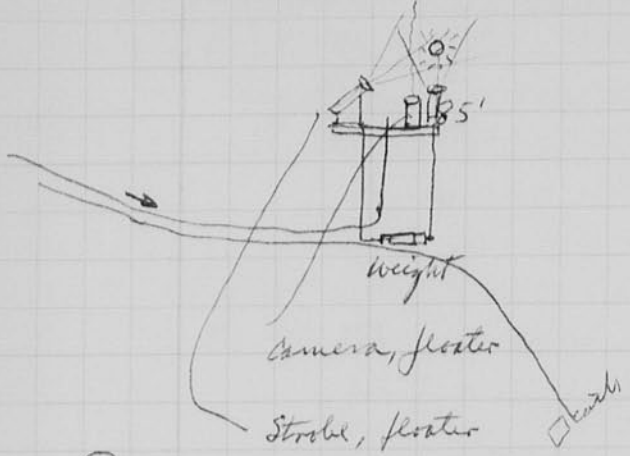 85'
Weight
Camera, floater
Strobe, floater